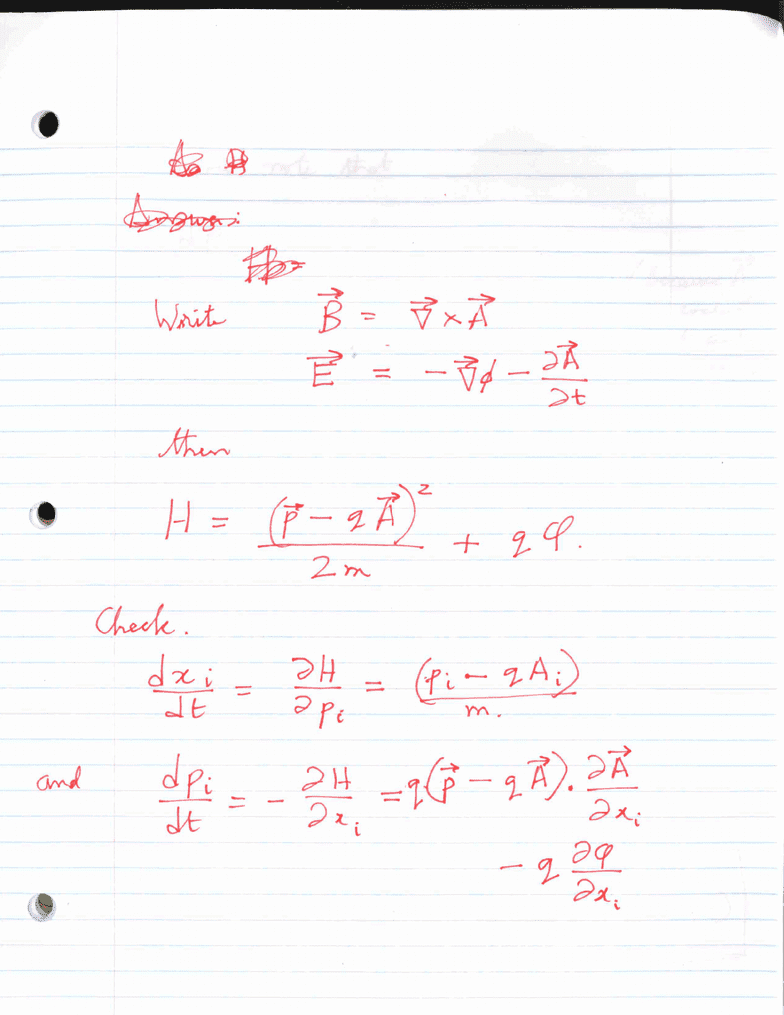 Write B⃗ = ∇⃗ × A⃗
E⃗ = − ∇⃗ϕ − ∂A⃗/∂t
then
H = (p⃗ − qA⃗)²/2m + qφ.
Check.
dxᵢ/dt = ∂H/∂pᵢ = (pᵢ − qAᵢ)/m.
and dpᵢ/dt = − ∂H/∂xᵢ = q(p⃗ − qA⃗) · ∂A⃗/∂xᵢ
− q ∂φ/∂xᵢ